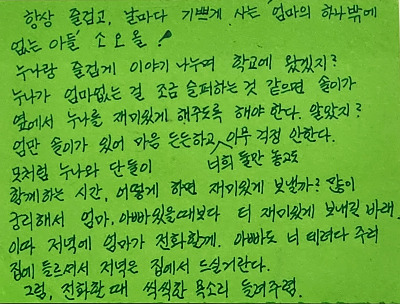 항상 즐겁고, 날마다 기쁘게 사는 엄마의 하나밖에
없는 아들 소오올!
누나랑 즐겁게 이야기 나누며 학교에 왔겠지?
누나가 엄마없는 걸 조금 슬퍼하는 것 같으면 솔이가
옆에서 누나를 재미있게 해주도록 해야 한다. 알았지?
엄만 솔이가 있어 마음 든든하고, 아무 걱정 안한다.
모처럼 누나와 단둘이 너희 둘만 놓고도
함께하는 시간, 어떻게 하면 재미있게 보낼까? 많이
궁리해서 엄마, 아빠있을때보다 더 재미있게 보내길 바래.
이따 저녁에 엄마가 전화할게. 아빠도 너 데려다 주러
집에 들르셔서 저녁은 집에서 드실거란다.
그럼, 전화할 때 씩씩한 목소리 들려주렴.